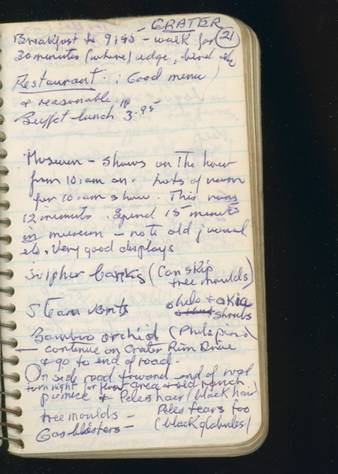 - CRATER
Breakfast to 9:45 - walk for 21
30 minutes (where) edge, bird etc
Restaurant : Good menu
& reasonable $
Buffet lunch 3.95
Museum - Shows on the hour
from 10:am on. Lots of room
for 10:am show. This runs
12 minutes. Spend 15 minutes
in museum - note old journal
etc. Very good displays
Sulpher banks (Can skip
tree moulds)
Steam vents ohelo + akia
shrubs
Bamboo orchid (Philipine)
- continue on Crater Rim Drive
& go to end of road.
On side road toward end of road
turn right for forest area & old ranch
pumice & Peles hair (black hair
tree moulds - Peles tears too
Gas blasters - (black globules)